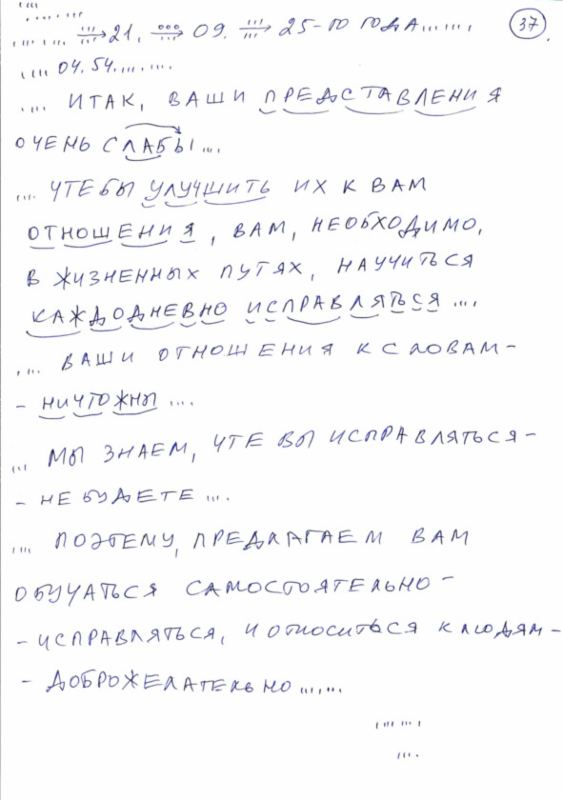 21. 09. 25-ГО ГОДА...... 37
.... 04.54.........
.... ИТАК, ВАШИ ПРЕДСТАВЛЕНИЯ
ОЧЕНЬ СЛАБЫ....
.... ЧТЕБЫ УЛУЧШИТЬ ИХ К ВАМ
ОТНОШЕНИЯ, ВАМ, НЕОБХОДИМО,
В ЖИЗНЕННЫХ ПУТЯХ, НАУЧИТЬСЯ
КАЖДОДНЕВНО ИСПРАВЛЯТЬСЯ....
.... ВАШИ ОТНОШЕНИЯ К СЛОВАМ-
- НИЧТОЖНЫ....
... МЫ ЗНАЕМ, ЧТЕ ВЫ ИСПРАВЛЯТЬСЯ-
- НЕ БУДЕТЕ....
.... ПОЭТЕМУ, ПРЕДЛАГАЕМ ВАМ
ОБУЧАТЬСЯ САМОСТОЯТЕЛЬНО-
- ИСПРАВЛЯТЬСЯ, И ОТНОСИТЬСЯ К ЛЮДЯМ-
- ДОБРОЖЕЛАТЕЛЬНО......